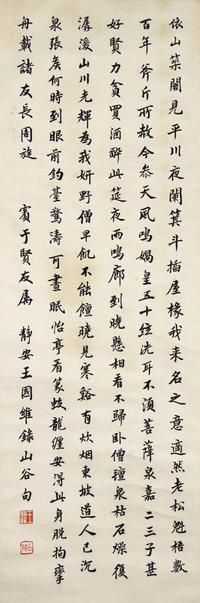 依山築閣見平川夜闌箕斗插屋椽我來名之意適然老松魁梧數
百年斧斤所赦今參天風鳴媧皇五十絃洗耳不須菩薩泉嘉二三子甚
好賢力貧買酒醉此筵夜雨鳴廊到曉懸相看不歸卧僧氈泉枯石燥復
潺湲山川光輝為我妍野僧早飢不能饘曉見寒谿有炊烟東坡道人已沉
泉張矦何時到眼前釣臺驚濤可晝眠怡亭看篆蛟龍纏安得此身脫拘攣
舟載諸友長周旋
賓于賢友屬 靜安王國維錄山谷句